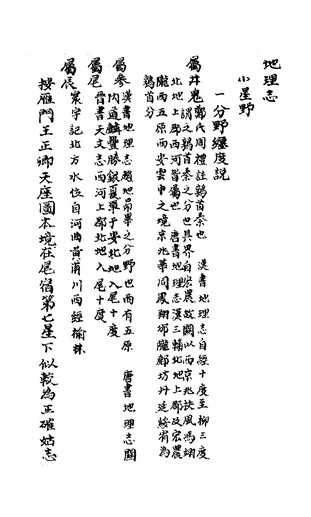 地理志
小星野
一分野纏度説
屬井鬼 鄭氏周禮註鶉首秦也 漢書地理志自經十度至柳三度
謂之鶉首秦之分也其界自宏農故關以西京兆扶風馮翊
北地上郡西河皆屬也 唐書地理志漢三輔北地上郡及宏農
隴西五原西安雲中之境京兆華同鳳翔邠隴鄜坊丹延綏宥為
鶉首分
屬參 漢書地理志趙地昴畢之分野也西有五原 唐書地理志關
內道麟豐勝銀夏單于安北地入尾十度
屬尾 晉書天文志西河上郡北地入尾十度
屬辰 寰宇記北方水位自河西黃甫川西經榆林
按雁門王正卿天座圖本境在尾宿第七星下似較為正確姑志